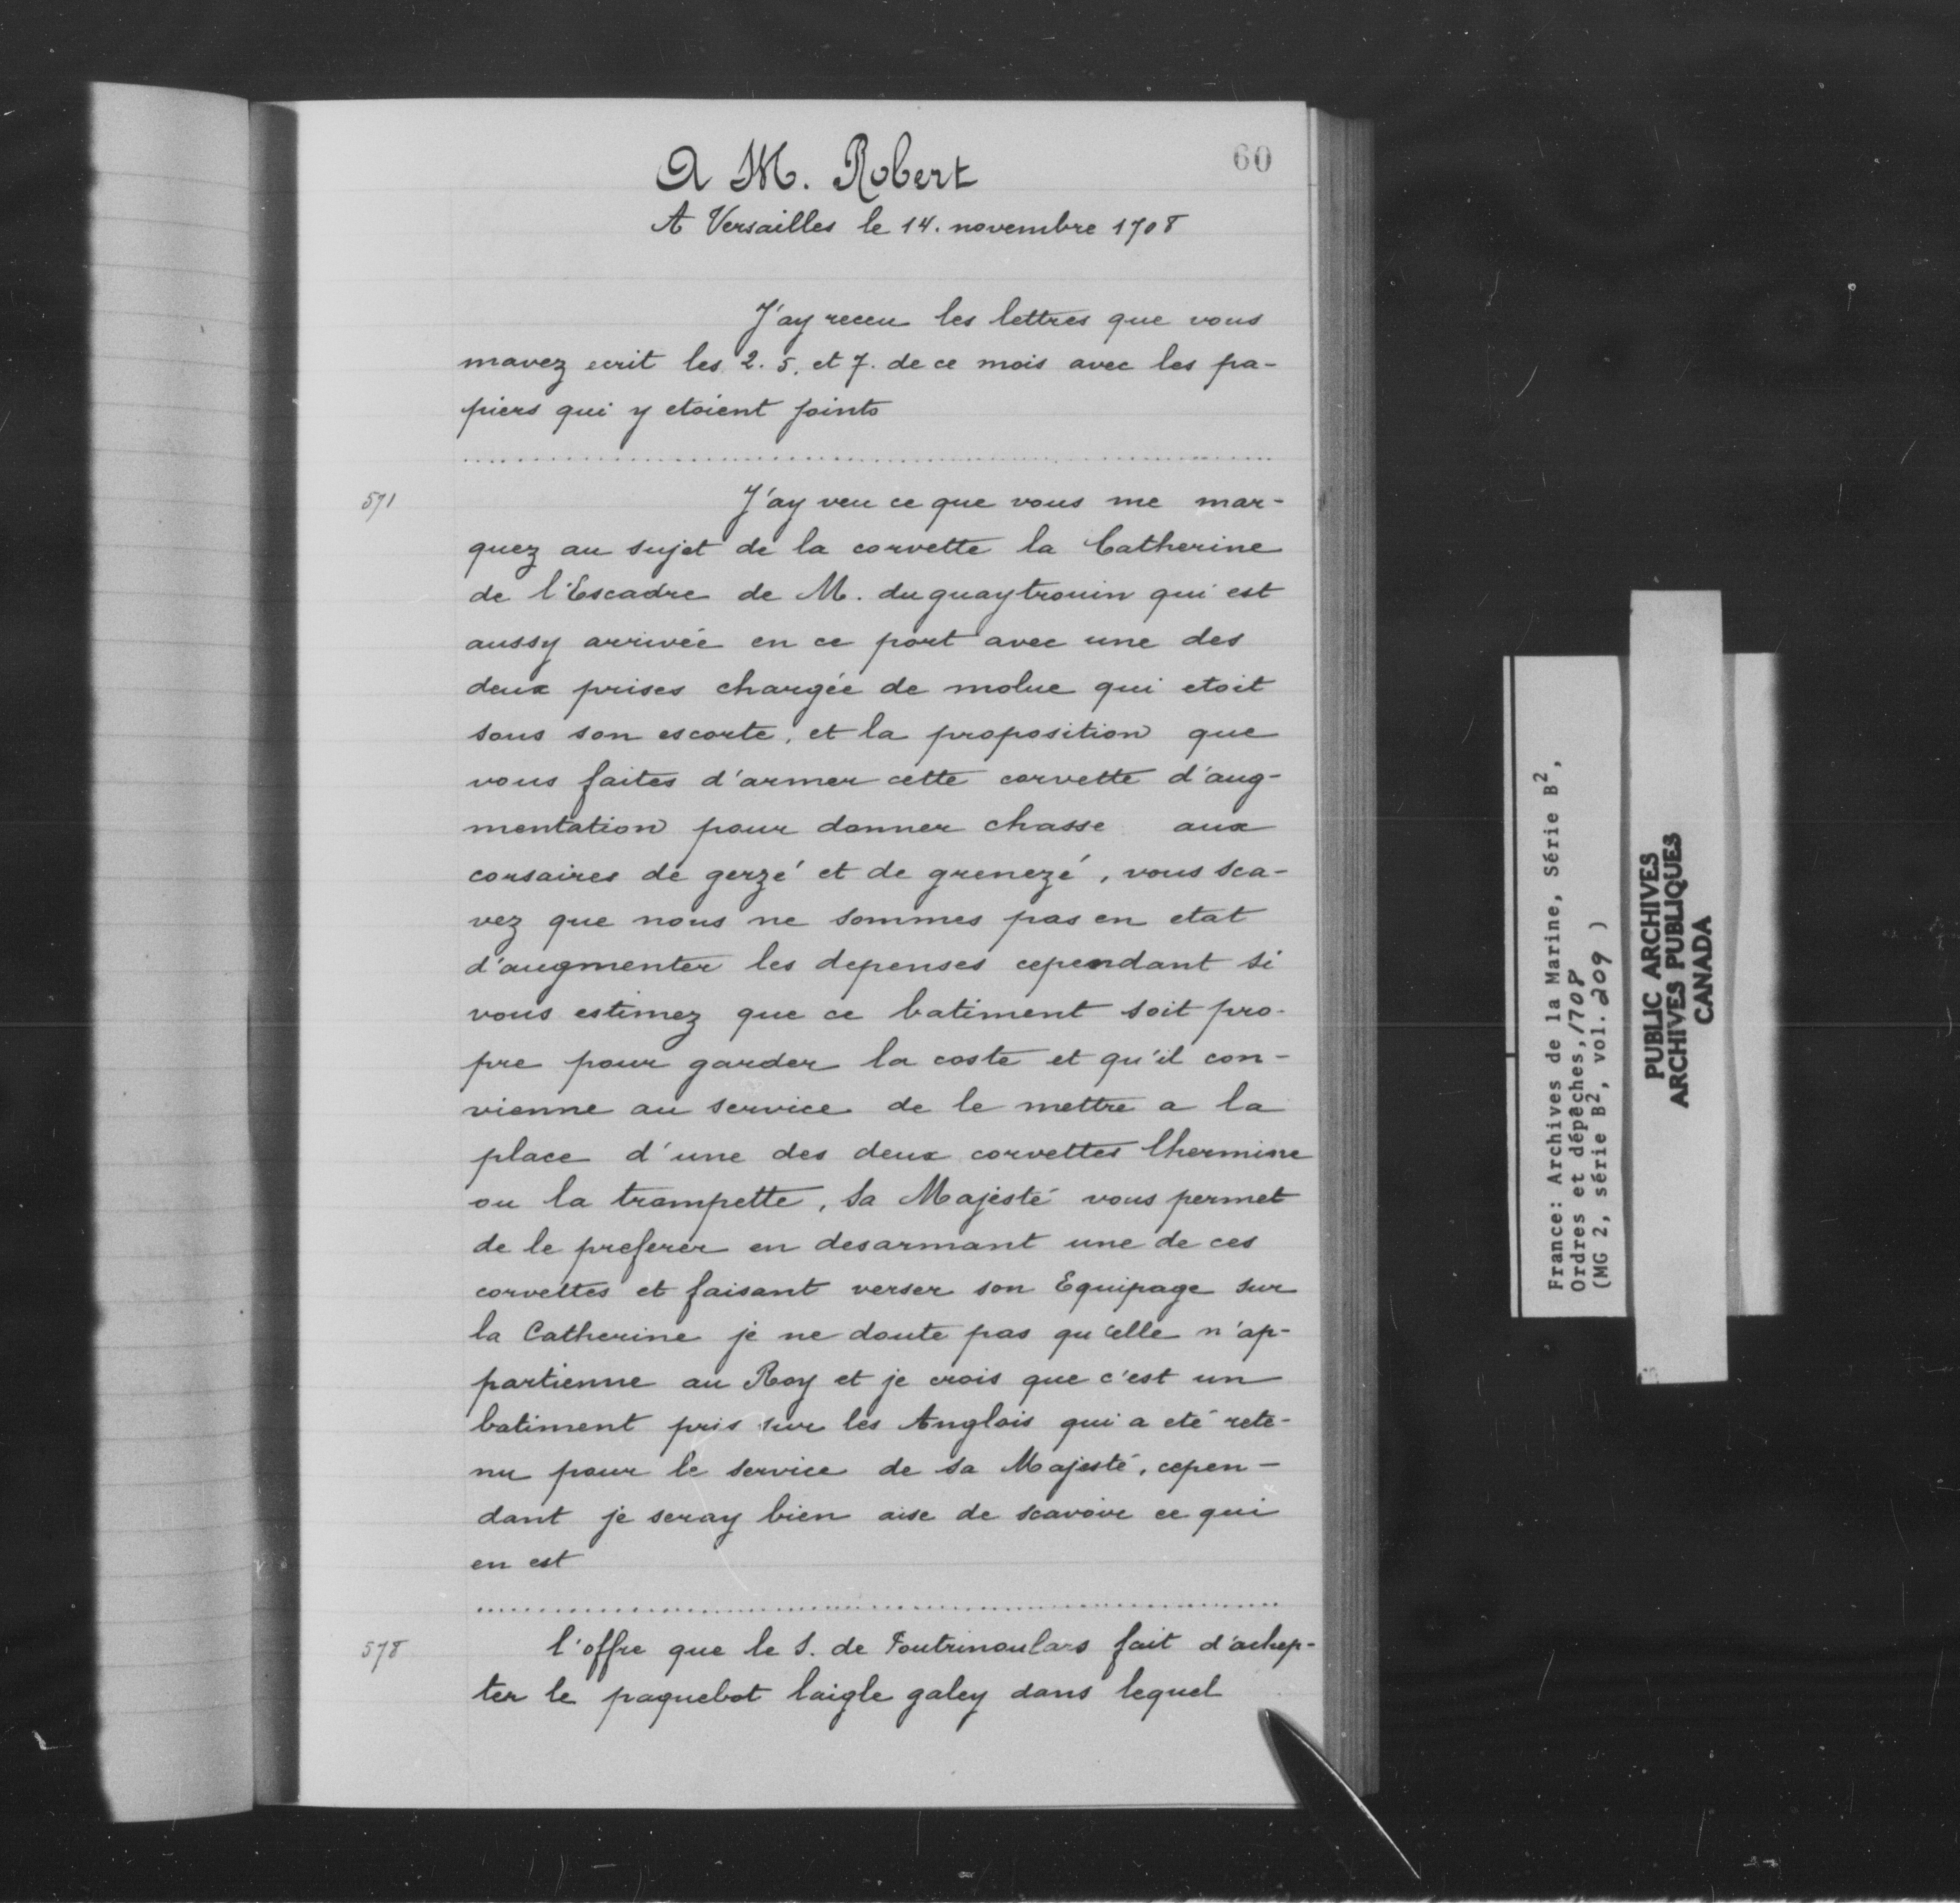 60
A M. Robert
A Versailles le 14. novembre 1708
J'ay receu les lettres que vous
mavez ecrit les 2. 5. et 7. de ce mois avec les pa-
piers qui y etoient joints
571
J'ay veu ce que vous me mar-
quez au sujet de la corvette la Catherine
de l'Escadre de M. duguaytrouin qui est
aussy arrivée en ce port avec une des
deux prises chargée de molue qui etoit
sous son escorte, et la proposition que
vous faites d'armer cette corvette d'aug-
mentation pour donner chasse aux
corsaires de gerzé et de grenezé, vous sca-
vez que nous ne sommes pas en etat
d'augmenter les depenses cependant si
vous estimez que ce batiment soit pro-
pre pour garder la coste et qu'il con-
vienne au service de le mettre a la
place d'une des deux corvettes lhermine
ou la trompette, sa Majesté vous permet
de le preferer en desarmant une de ces
corvettes et faisant verser son Equipage sur
la Catherine je ne doute pas qu'elle n'ap-
partienne au Roy et je crois que c'est un
batiment pris sur les Anglois qui a eté rete-
nu pour le service de sa Majesté, cepen-
dant je seray bien aise de scavoir ce qui
en est
578
l'offre que le S. de fait d'achep-
ter le paquebot laigle galey dans lequel
France: Archives de la Marine, Série B2,
Ordres et dépêches, 1708
(MG 2, série B2, vol. 209 )
PUBLIC ARCHIVES
ARCHIVES PUBLIQUES
CANADA